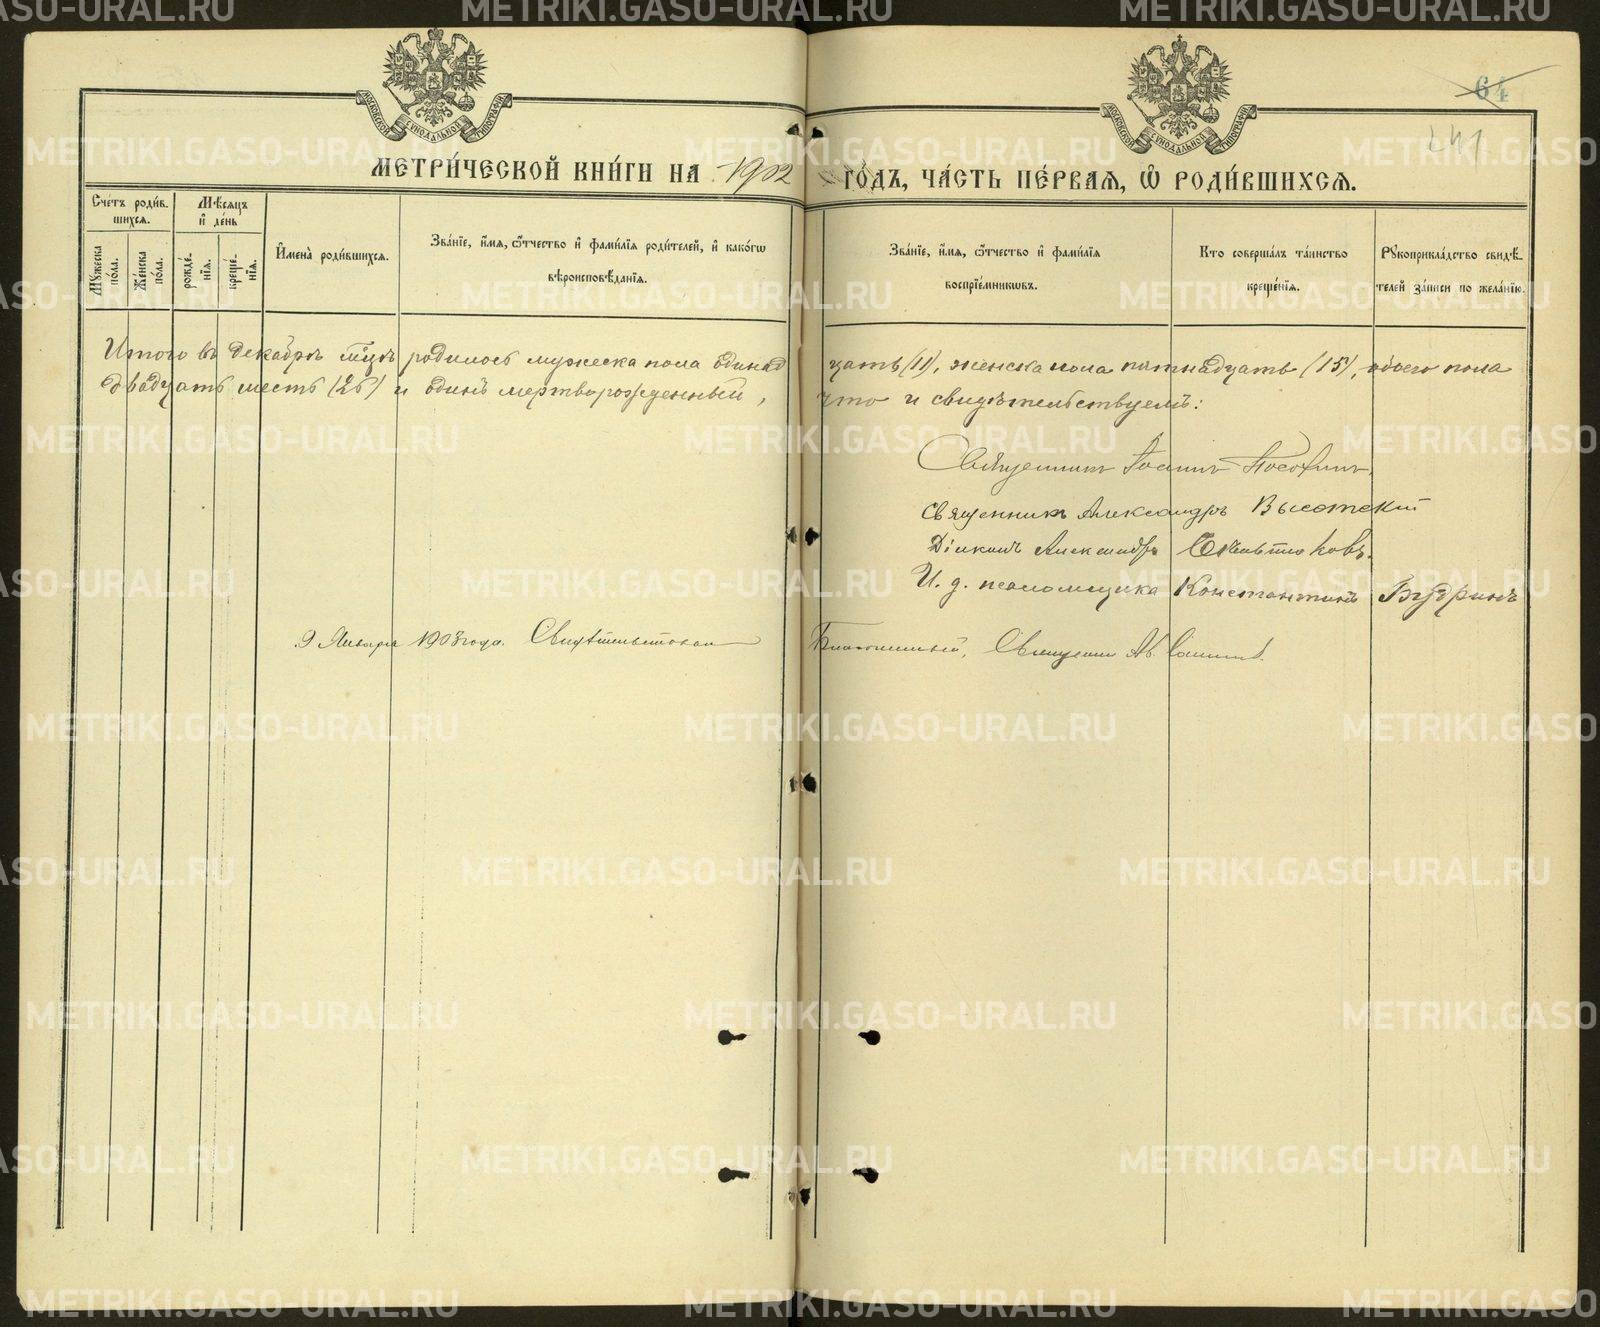 МОСКОВСКОЙ СУНОДАЛЬНОЙ ТИПОГРАФІИ
МОСКОВСКОЙ СУНОДАЛЬНОЙ ТИПОГРАФІИ
64
241
МЕТРИ́ЧЕСКОЙ КНИ́ГИ НА 1902 ГО́ДЪ, ЧА́СТЬ ПЕ́РВАЯ, Ѡ РОДИ́ВШИХСЯ.
Сче́тъ роди́в-
шихся.
Мѣ́сяцъ
и҆ де́нь
Му́жеска по́ла.
Же́нска по́ла.
рожде́-нїя.
креще́-нїя.
И҆мена̀ роди́вшихся.
Зва́нїе, и҆́мя, ѻ҆́тчество и҆ фами́лїя роди́телей, и҆ како́гѡ
вѣроисповѣ́данїя.
Зва́нїе, и҆́мя, ѻ҆́тчество и҆ фами́лїя
воспрїе́мникѡвъ.
Кто соверша́лъ та́инство
креще́нїя.
Рукоприкла́дство свидѣ́-
телей за́писи по жела́нїю.
Итого въ декабрѣ м-цѣ родилось мужеска пола одинад цать (11), женска пола пятнадцать (15), обоего пола
двадцать шесть (26) и одинъ мертворожденный, что и свидѣтельствуемъ:
Священникъ Іоаннъ
Священникъ Александръ Высотскій
Діаконъ Александръ
И. д. псаломщика Константинъ Будринъ
9 Января 1903 года. Свидѣтельствовал Благочинный, Священник
METRIKI.GASO-URAL.RU